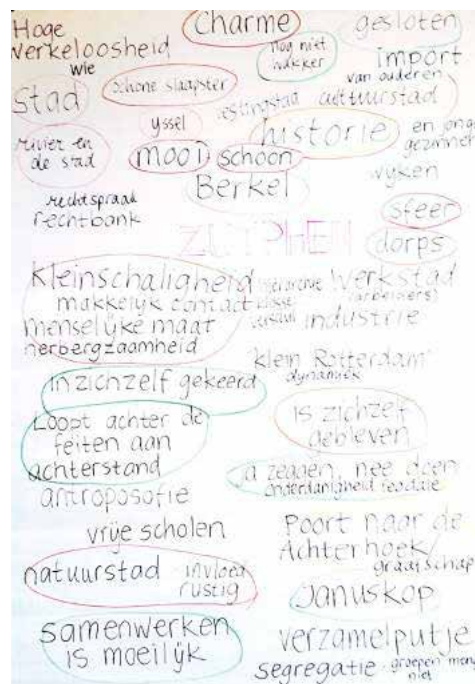 Hoge
werkeloosheid
wie
Charme
gesloten
nog niet
wakker
import
van ouderen
en jonge
gezinnen
stad
schone slaapster
vestingstad
cultuurstad
yssel
historie
rivier en
de stad
mooi
schoon
wijken
Berkel
rechtspraak
rechtbank
sfeer
ZUTPHEN
dorps
Kleinschaligheid
makkelijk contact
menselijke maat
herbergzaamheid
werkstad
(arbeiders)
industrie
klein Rotterdam
dynamiek
in zichzelf gekeerd
is zichzelf
gebleven
Loopt achter de
feiten aan
achterstand
ja zeggen, nee doen
onderdanigheid feodale
antroposofie
vrije scholen
Poort naar de
Achterhoek/
graafschap
natuurstad
invloed
rustig
Januskop
samenwerken
is moeilijk
verzamelputje
segregatie
groepen
niet